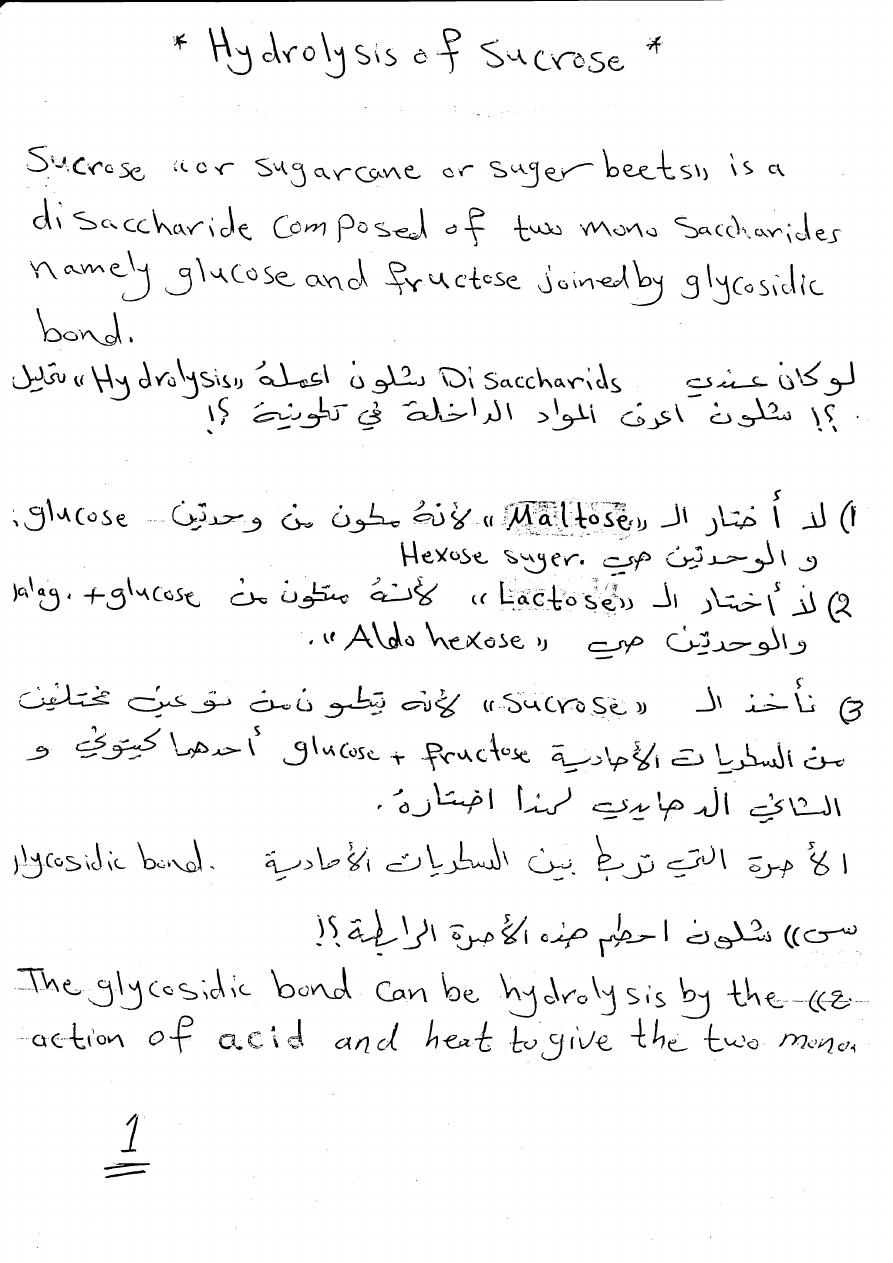 * Hydrolysis of Sucrose *
Sucrose "or sugarcane or suger beets" is a
disaccharide composed of two mono saccharides
namely glucose and fructose joined by glycosidic
bond.
لو كان عندي Disaccharids شلون اعمله "Hydrolysis" تحليل
؟! شلون اعرف المواد الداخلة في تكوينة ؟!
1) لا أختار الـ "Maltose" لأنهُ مكون من وحدتين glucose
و الوحدتين هي Hexose suger.
2) لا أختار الـ "Lactose" لأنهُ متكون من glucose + galag.
والوحدتين هي "Aldo hexose".
3) نأخذ الـ "Sucrose" لأنه يتكون من نوعين مختلفين
من السكريات الأحادية glucose + fructose أحدهما كيتوني و
الثاني الدهايدي لهذا اختارهُ.
الأصرة التي تربط بين السكريات الأحادية glycosidic bond.
س)) شلون احطم هذه الأصرة الرابطة؟!
ج)) The glycosidic bond can be hydrolysis by the
action of acid and heat to give the two mono.
1